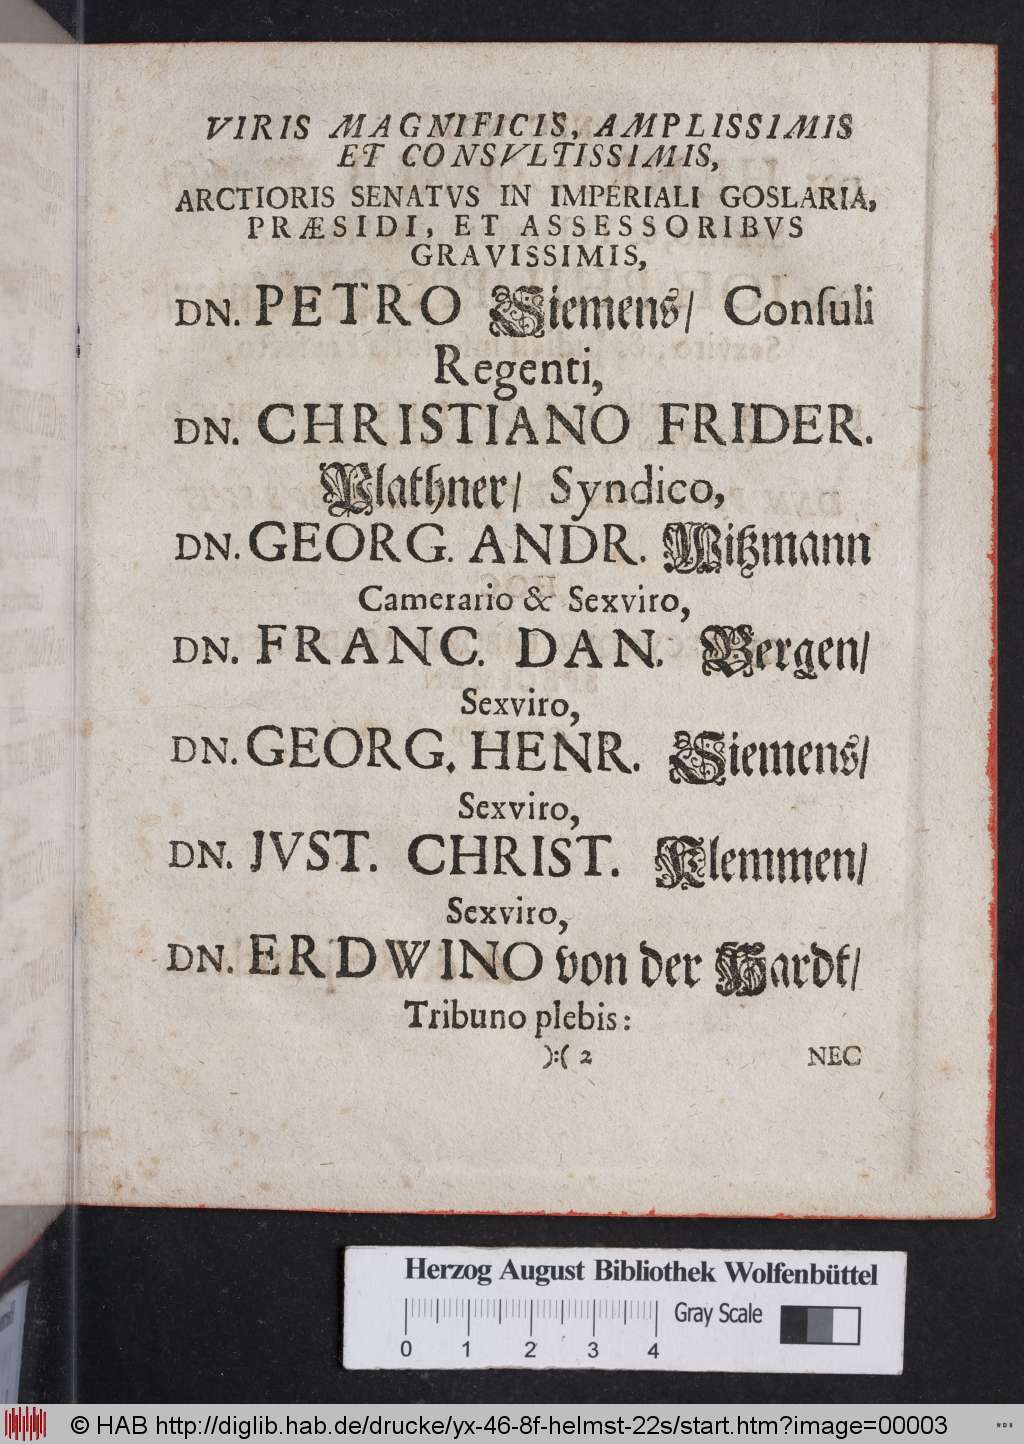 VIRIS MAGNIFICIS, AMPLISSIMIS
ET CONSVLTISSIMIS,
ARCTIORIS SENATVS IN IMPERIALI GOSLARIA,
PRÆSIDI, ET ASSESSORIBVS
GRAVISSIMIS,
DN. PETRO Siemens/ Conſuli
Regenti,
DN. CHRISTIANO FRIDER.
Plathner/ Syndico,
DN. GEORG. ANDR. Witzmann
Camerario & Sexviro,
DN. FRANC. DAN. Bergen/
Sexviro,
DN. GEORG. HENR. Siemens/
Sexviro,
DN. JVST. CHRIST. Klemmen/
Sexviro,
DN. ERDWINO von der Hardt/
Tribuno plebis:
):( 2 NEC
Herzog August Bibliothek Wolfenbüttel
Gray Scale
0 1 2 3 4
© HAB http://diglib.hab.de/drucke/yx-46-8f-helmst-22s/start.htm?image=00003